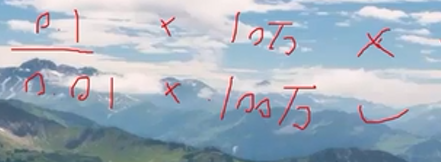 0.1 × 10万 ×
0.01 × 100万 ✓